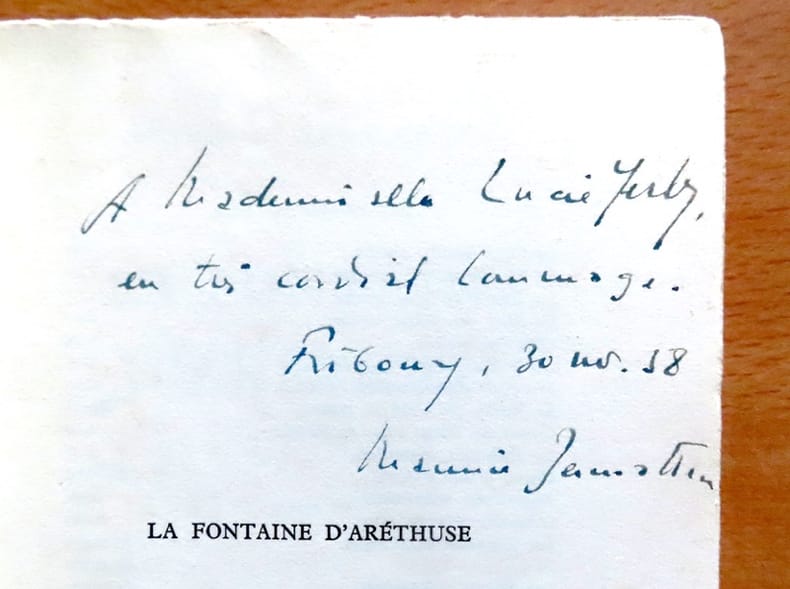 A Mademoiselle Lucie
en très cordial hommage.
Fribourg, 30 nov. 58
Maurice Zermatten
LA FONTAINE D'ARÉTHUSE